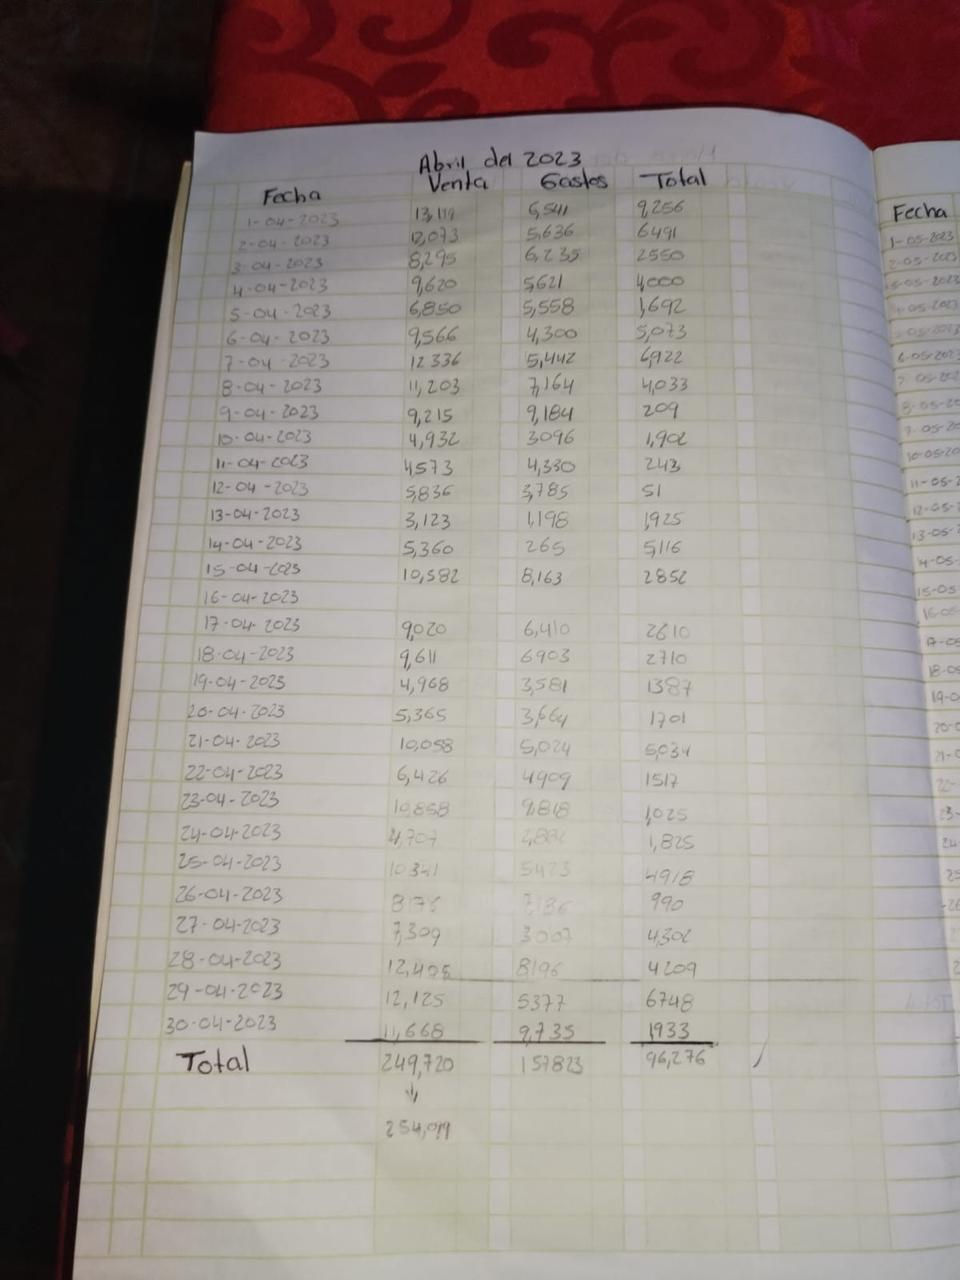 Abril del 2023
Fecha Venta Gastos Total
1-04-2023 13,119 6,541 9256
2-04-2023 12,073 5,636 6491
3-04-2023 8,295 6,235 2550
4-04-2023 9,620 5,621 4,000
5-04-2023 6,850 5,558 1,692
6-04-2023 9,566 4,300 5,073
7-04-2023 12336 5,442 6,922
8-04-2023 11,203 7,164 4,033
9-04-2023 9,215 9,184 209
10-04-2023 4,932 3096 1,902
11-04-2023 4573 4,330 243
12-04-2023 5,836 3,785 51
13-04-2023 3,123 1,198 1,925
14-04-2023 5,360 265 5,116
15-04-2023 10,582 8,163 2852
16-04-2023
17-04-2023 9,020 6,410 2610
18-04-2023 9,611 6903 2710
19-04-2023 4,968 3,581 1387
20-04-2023 5,365 3,664 1701
21-04-2023 10,058 5,024 5,034
22-04-2023 6,426 4909 1517
23-04-2023 10,858 9818 1,025
24-04-2023 4,707 1,825
25-04-2023 10341 5423 4918
26-04-2023 990
27-04-2023 7,309 3007 4,302
28-04-2023 12,405 8196 4209
29-04-2023 12,125 5377 6748
30-04-2023 11,668 9,735 1933
Total 249,720 157823 96,276
Fecha
1-05-2023
2-05-2023
6-05-202
10-05-20
11-05-
12-05-
13-05-
14-05-
15-05
16-05
17-05
18-05
19-0
20-0
21-0
22-
23-
24
25